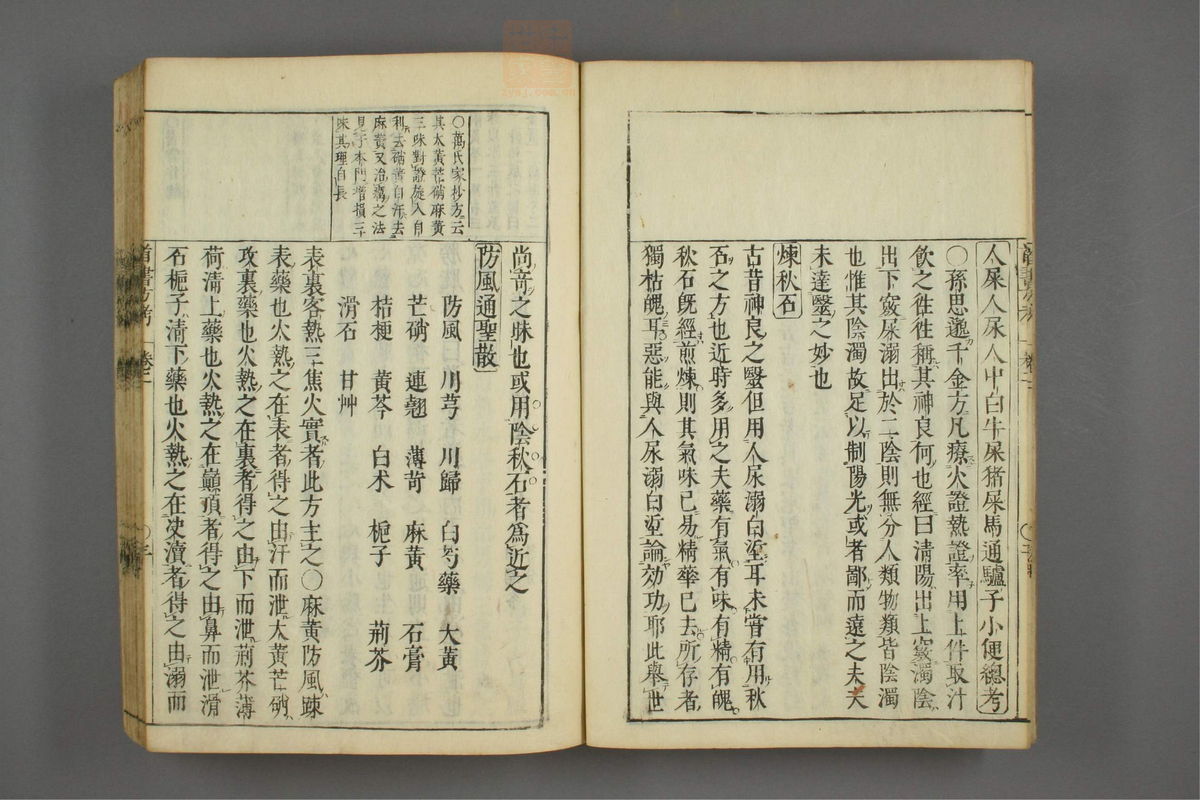 人屎人尿人中白牛屎猪屎馬通驢子小便總考
○孫思邈千金方凡療火證熱證率用上件取汁
飲之徃徃稱其神良何也經曰清陽出上竅濁陰
出下竅屎溺出於二陰則無分人類物類皆陰濁
也惟其陰濁故足以制陽光或者鄙而遠之未夫
未達毉之妙也
煉秋石
古昔神良之毉但用人尿溺白垽耳未嘗有用秋
石之方也近時多用之夫藥有氣有味有精有魄
秋石旣經煎煉則其氣味已易精華已去所存者
獨枯魄耳惡能與人尿溺白垽論効功耶此舉世
尚竒之昧也或用陰秋石者爲近之
○萬氏家抄方云
其大黃芒硝麻黃
三味對證旋入自
利去硝黃自汗去
麻黃又治癘之法
見于本門增損三
味其理自長
防風通聖散
防風 川芎 川歸 白芍藥 大黃
芒硝 連翹 薄苛 麻黃 石膏
桔梗 黃芩 白术 梔子 荊芥
滑石 甘艸
表裏客熱三焦火實者此方主之○麻黃防風踈
表藥也火熱之在表者得之由汗而泄大黃芒硝
攻裏藥也火熱之在裏者得之由下而泄荊芥薄
荷清上藥也火熱之在巔頂者得之由鼻而泄滑
石梔子清下藥也火熱之在决瀆者得之由溺而
卷二